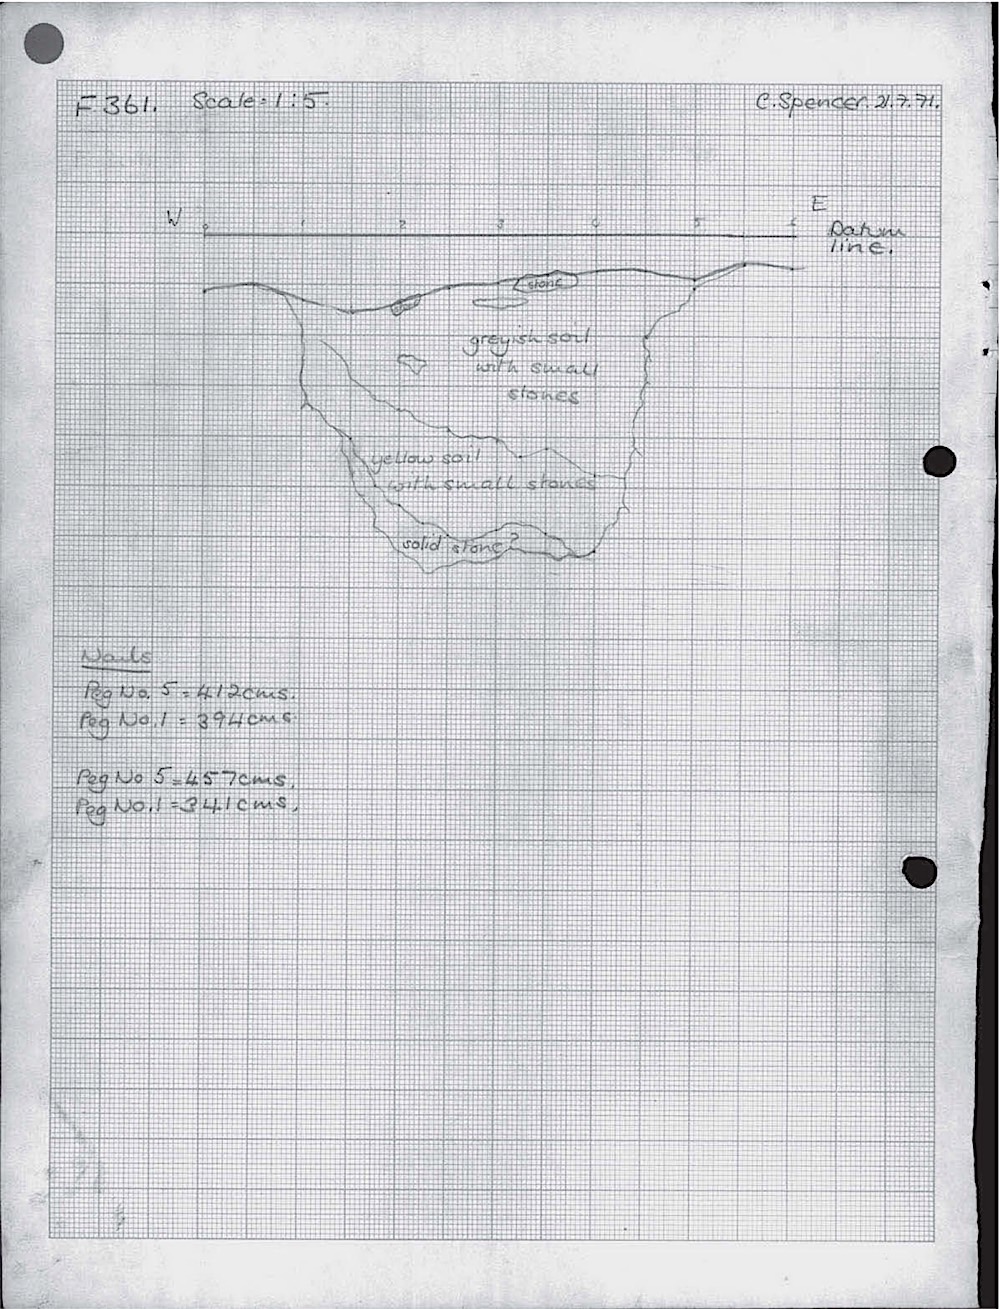 F361. Scale = 1:5.
C. Spencer. 21.7.71.
W
E
0 1 2 3 4 5 6
Datum
line.
stone
greyish soil
with small
stones
yellow soil
with small stones
solid stone?
Nails
Peg No. 5 = 412cms.
Peg No. 1 = 394cms.
Peg No 5 = 457cms.
Peg No. 1 = 341cms.